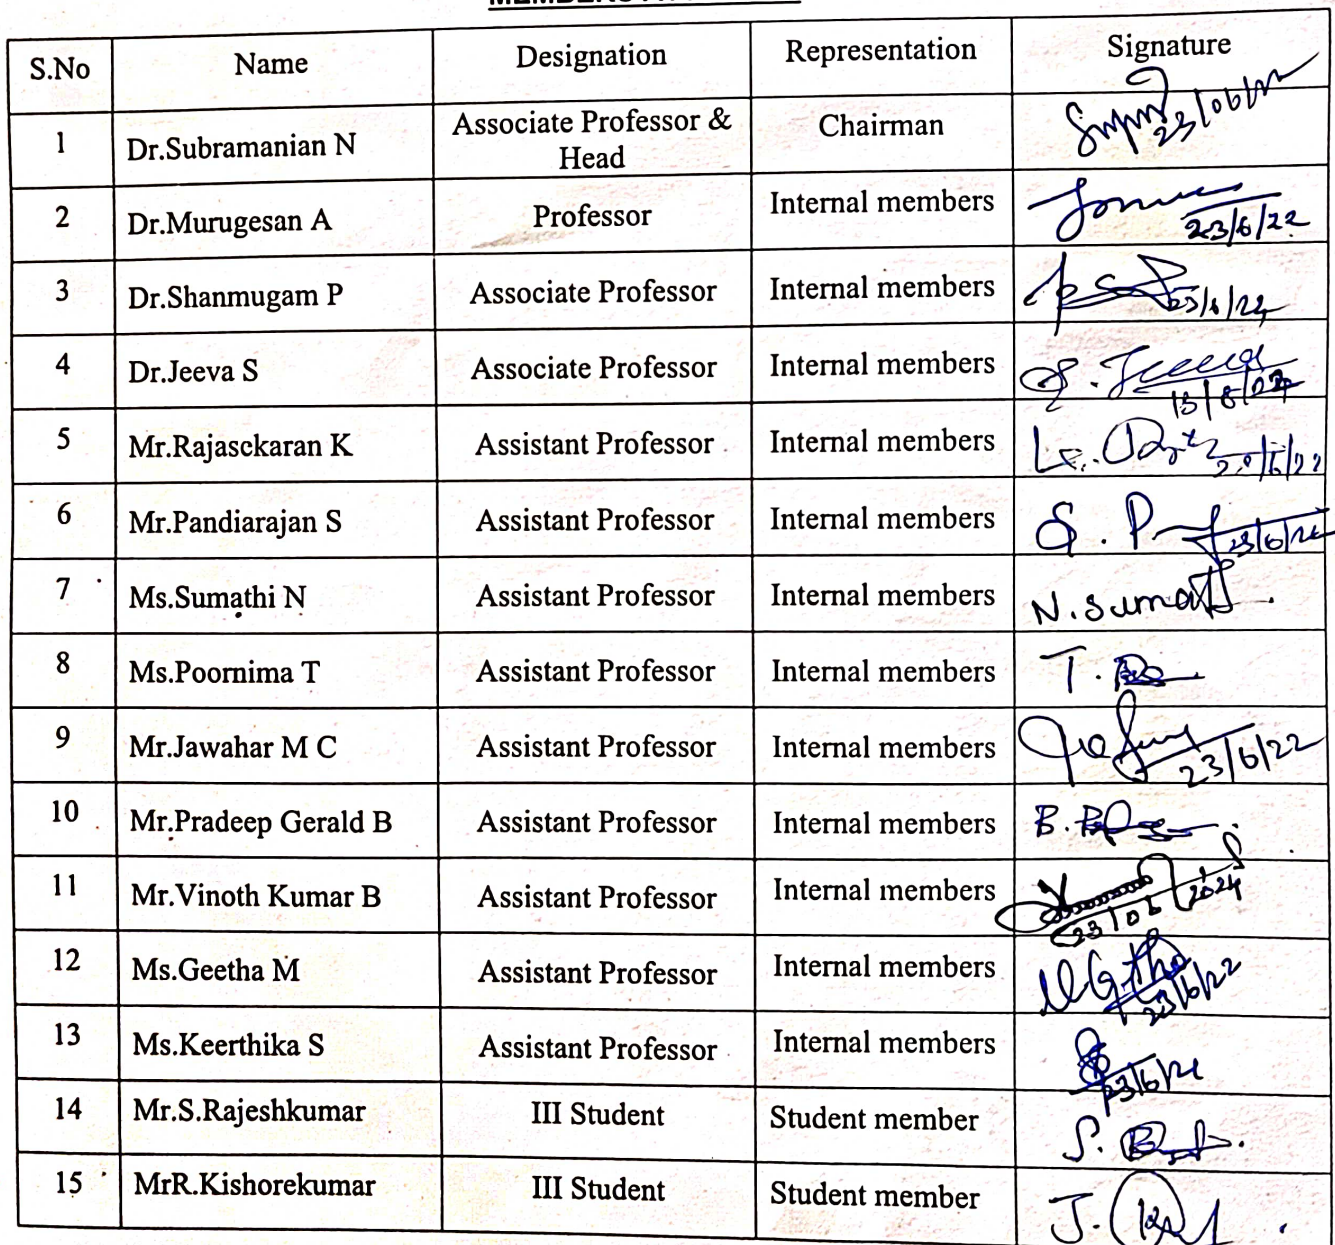 S.No Name Designation Representation Signature
1 Dr.Subramanian N Associate Professor & Head Chairman 23/06/22
2 Dr.Murugesan A Professor Internal members 23/6/22
3 Dr.Shanmugam P Associate Professor Internal members
4 Dr.Jeeva S Associate Professor Internal members S. Jeeva
5 Mr.Rajasekaran K Assistant Professor Internal members
6 Mr.Pandiarajan S Assistant Professor Internal members S. P
7 Ms.Sumathi N Assistant Professor Internal members N. Sumathi
8 Ms.Poornima T Assistant Professor Internal members T.
9 Mr.Jawahar M C Assistant Professor Internal members 23/6/22
10 Mr.Pradeep Gerald B Assistant Professor Internal members B.
11 Mr.Vinoth Kumar B Assistant Professor Internal members
12 Ms.Geetha M Assistant Professor Internal members 23/6/22
13 Ms.Keerthika S Assistant Professor Internal members
14 Mr.S.Rajeshkumar III Student Student member S.
15 MrR.Kishorekumar III Student Student member J.